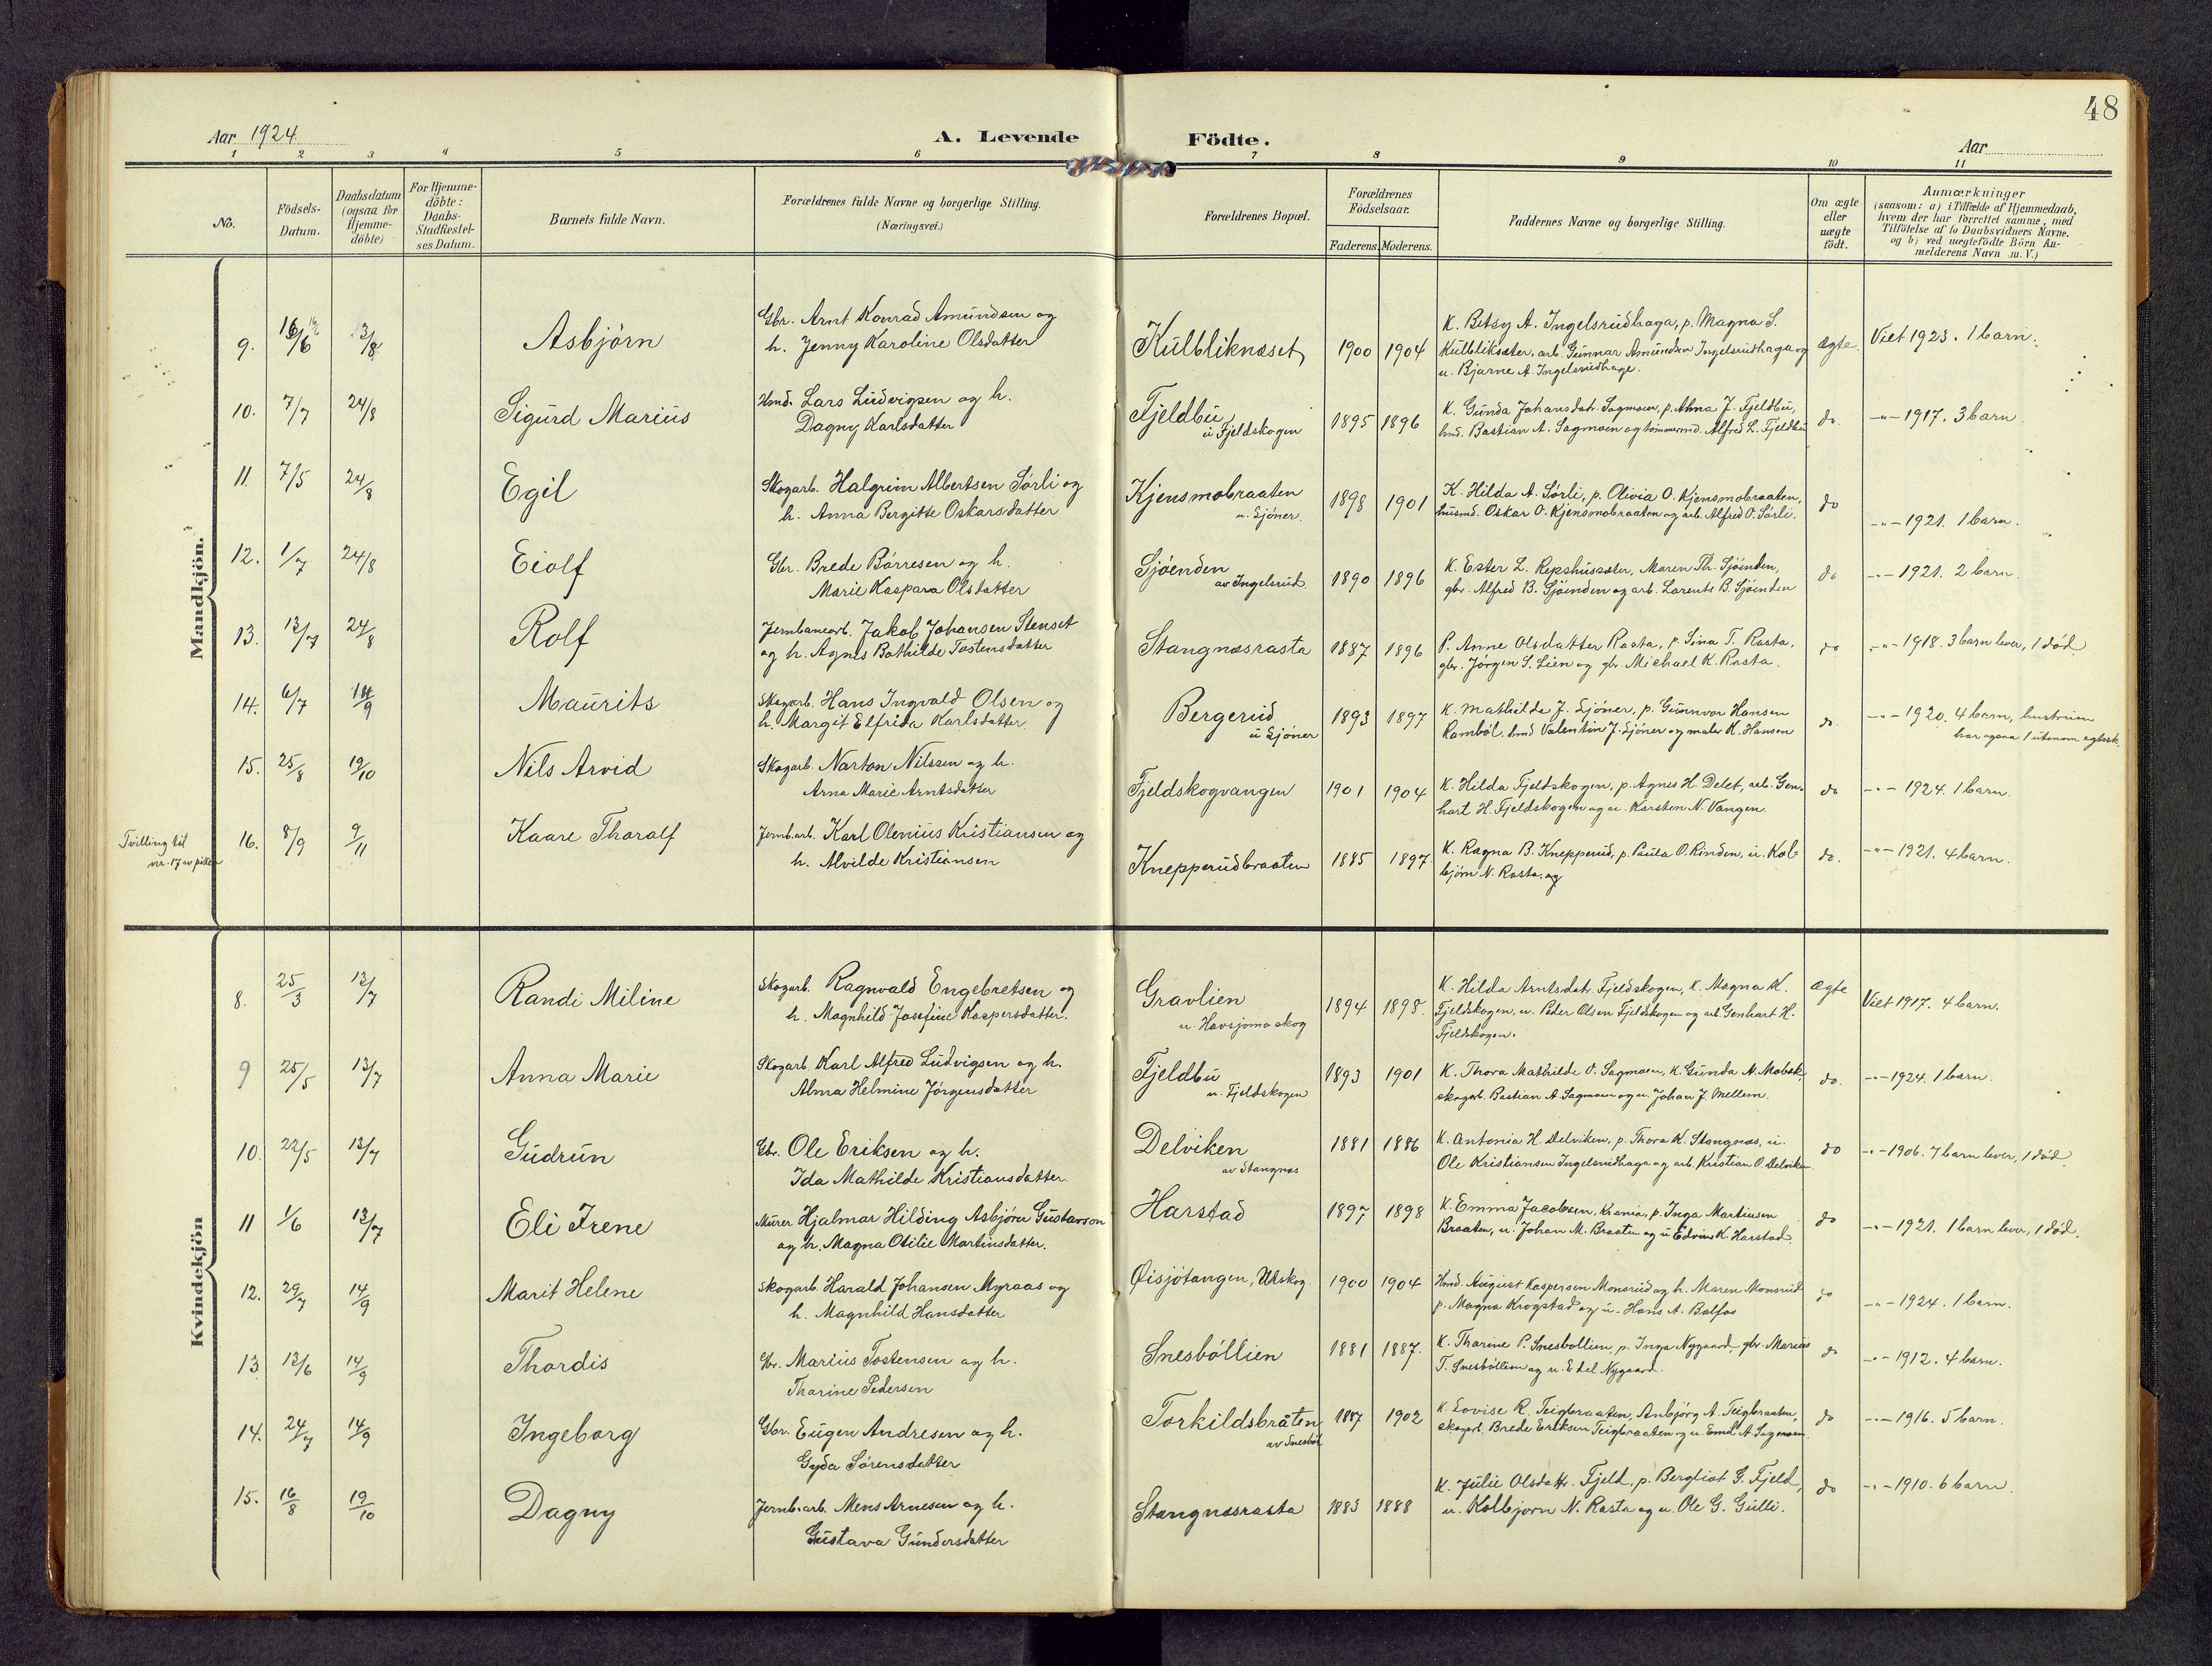 48
Aar 1924.
A. Levende Födte.
Aar
1 2 3 4 5 6 7 8 9 10 11
No.
Födsels-Datum.
Daabsdatum (ogsaa for Hjemme-döbte)
For Hjemme-döbte: Daabs-Stadfæstel-ses Datum.
Barnets fulde Navn.
Forældrenes fulde Navne og borgerlige Stilling.
(Næringsvei.)
Forældrenes Bopæl.
Forældrenes Födselsaar.
Faderens. Moderens.
Faddernes Navne og borgerlige Stilling.
Om ægte eller uægte födt.
Anmærkninger
(saasom: a) i Tilfælde af Hjemmedaab,
hvem der har forrettet samme, med
Tilföielse af to Daabsvidners Navne,
og b) ved uægtefödte Börn An-
melderens Navn m. V.)
Mandkjön.
9. 16/6 3/8 Asbjörn
Gbr. Arnt Konrad Amundsen og
h. Jenny Karoline Olsdatter
Kulbliknæset 1900 1904
K. Betsy A. Ingelsrudhaga, p. Magna S.
Kulbliksæter, arb. Gunnar Amundsen Ingelsrudhaga og
u. Bjarne A. Ingelsrudhage.
ægte. Viet 1923. 1 barn.
10. 7/7 24/8 Sigurd Marius
Hmd. Lars Ludvigsen og h.
Dagny Karlsdatter
Fjeldbu
u Fjeldskogen
1895 1896
K. Gunda Johansdatr. Sagmoen, p. Alma J. Fjeldbu,
hmd. Bastian A. Sagmoen og tömmermd. Alfred L. Fjeldbu
do. -"- 1917. 3 barn.
11. 7/5 24/8 Egil
Skogarb. Halgrim Albertsen Sörli og
h. Anna Bergitte Oskarsdatter
Kjensmobraaten
u. Sjöner.
1898 1901
K. Hilda A. Sörli, p. Olivia O. Kjensmobraaten,
husmd. Oskar O. Kjensmobraaten og arb. Alfred O. Sörli.
do -"- 1921. 1 barn.
12. 1/7 24/8 Eiolf
Gbr. Brede Börresen og h.
Marie Kaspara Olsdatter
Sjöenden
av Ingelsrud.
1890 1896
K. Ester L. Repshussæter, Maren Th. Sjöenden,
gbr. Alfred B. Sjöenden og arb. Lorents B. Sjöenden
do -"- 1921. 2 barn.
13. 13/7 24/8 Rolf
Jernbanearb. Jakob Johansen Stenset
og h. Agnes Bathilde Tostensdatter
Stangnæsrasta 1887 1896
P. Anne Olsdatter Rasta, p. Sina T. Rasta,
gbr. Jörgen S. Lien og gbr. Michael K. Rasta.
do -"- 1918. 3 barn lever, 1 död.
14. 6/7 14/9 Maurits
Skogarb. Hans Ingvald Olsen og
h. Margit Elfrida Karlsdatter
Bergerud
u Sjöner
1893 1897
K. Mathilde J. Sjöner, p. Gunnvor Hansen
Ramböl, hmd Valentin J. Sjöner og maler K. Hansen
do. -"- 1920. 4 barn, hustruen
har ogsaa 1 utenom ægtesk.
15. 25/8 19/10 Nils Arvid
Skogarb. Narton Nilssen og h.
Arna Marie Arntsdatter
Fjeldskogvangen 1901 1904
K. Hilda Fjeldskogen, p. Agnes H. Delet, arb. Gen-
hart H. Fjeldskogen og u. Karsten N. Vangen.
do -"- 1924. 1 barn.
Tvilling til
nr. 17 av piker
16. 8/9 9/11 Kaare Thoralf
Jernb.arb. Karl Olenius Kristiansen og
h. Alvilde Kristiansen
Knepperudbraaten 1885 1897.
K. Ragna B. Knepperud, p. Paula O. Rinden, u. Kol-
björn N. Rasta. og
do. -"- 1921. 4 barn.
Kvindekjön
8. 25/3 13/7 Randi Miline
Skogarb. Ragnvald Engebretsen og
h. Magnhild Josefine Kaspersdatter.
Gravlien
u. Havsjomo skog
1894 1898.
K. Hilda Arntsdatr. Fjeldskogen, K. Magna K.
Fjeldskogen, u. Peder Olsen Fjeldskogen og arb Genhart H.
Fjeldskogen.
Ægte Viet 1917. 4 barn.
9 25/5 13/7 Anna Marie
Skogarb. Karl Alfred Ludvigsen og h.
Alma Helmine Jörgensdatter
Fjeldbu
u. Fjeldskogen
1893 1901
K. Thora Mathilde O. Sagmoen, K. Gunda N. Mobæk,
skogarb. Bastian A Sagmoen og u. Johan J. Mellem.
do. -"- 1924. 1 barn.
10. 22/5 13/7 Gudrun
Gbr. Ole Eriksen og h.
Ida Mathilde Kristiansdatter.
Delviken
av Stangnæs
1881 1886
K. Antonia H. Delviken, p. Thora K. Stangnæs, u.
Ole Kristiansen Ingelsrudhaga og arb. Kristian O. Delviken.
do -"- 1906. 7 barn lever, 1 död.
11 1/6 13/7 Eli Irene
Murer Hjalmar Hilding Asbjörn Gustavson
og h. Magna Otilie Martinsdatter.
Harstad 1897 1898
K. Emma Jacobsen, Krania, p. Inga Martinsen
Braaten, u. Johan M. Braaten og u Edvin K. Harstad.
do -"- 1921. 1 barn lever, 1 död.
12. 29/7 14/9 Marit Helene
Skogarb. Harald Johansen Myraas og
h. Magnhild Hansdatter
Øisjötangen, Utskog. 1900 1904
Hmd. August Kaspersen Monsrud og h. Maren Monsrud
p. Magna Krogstad og u. Hans A. Balfos
do -"- 1924. 1 barn.
13. 13/6 14/9 Thordis
Gbr. Marius Tostensen og h.
Tharine Pedersen
Snesböllien 1881 1887.
K. Tharine P. Snesbollien, p. Inga Nygaard, gbr. Marius
T. Snesböllien og u. Edel Nygaard.
do -"- 1912. 4 barn.
14. 24/7 14/9 Ingeborg
Gbr. Eugen Andresen og h.
Gyda Sörensdatter
Torkildsbråten
av Snesböl
1887 1902
K. Lovise R. Teigbraaten, Anbjörg A. Teigbraaten,
skogarb. Brede Eriksen Teigbraaten og u. Emil A Sagmoen.
do -"- 1916. 5 barn.
15. 16/8 19/10 Dagny
Jernb.arb. Mens Arnesen og h.
Gustava Gundersdatter
Stangnæsrasta 1883 1888
K. Julie Olsdattr. Fjeld, p. Bergliot G. Fjeld,
u. Kolbjorn N. Rasta og u. Ole G. Gulli.
do -"- 1910. 6 barn.